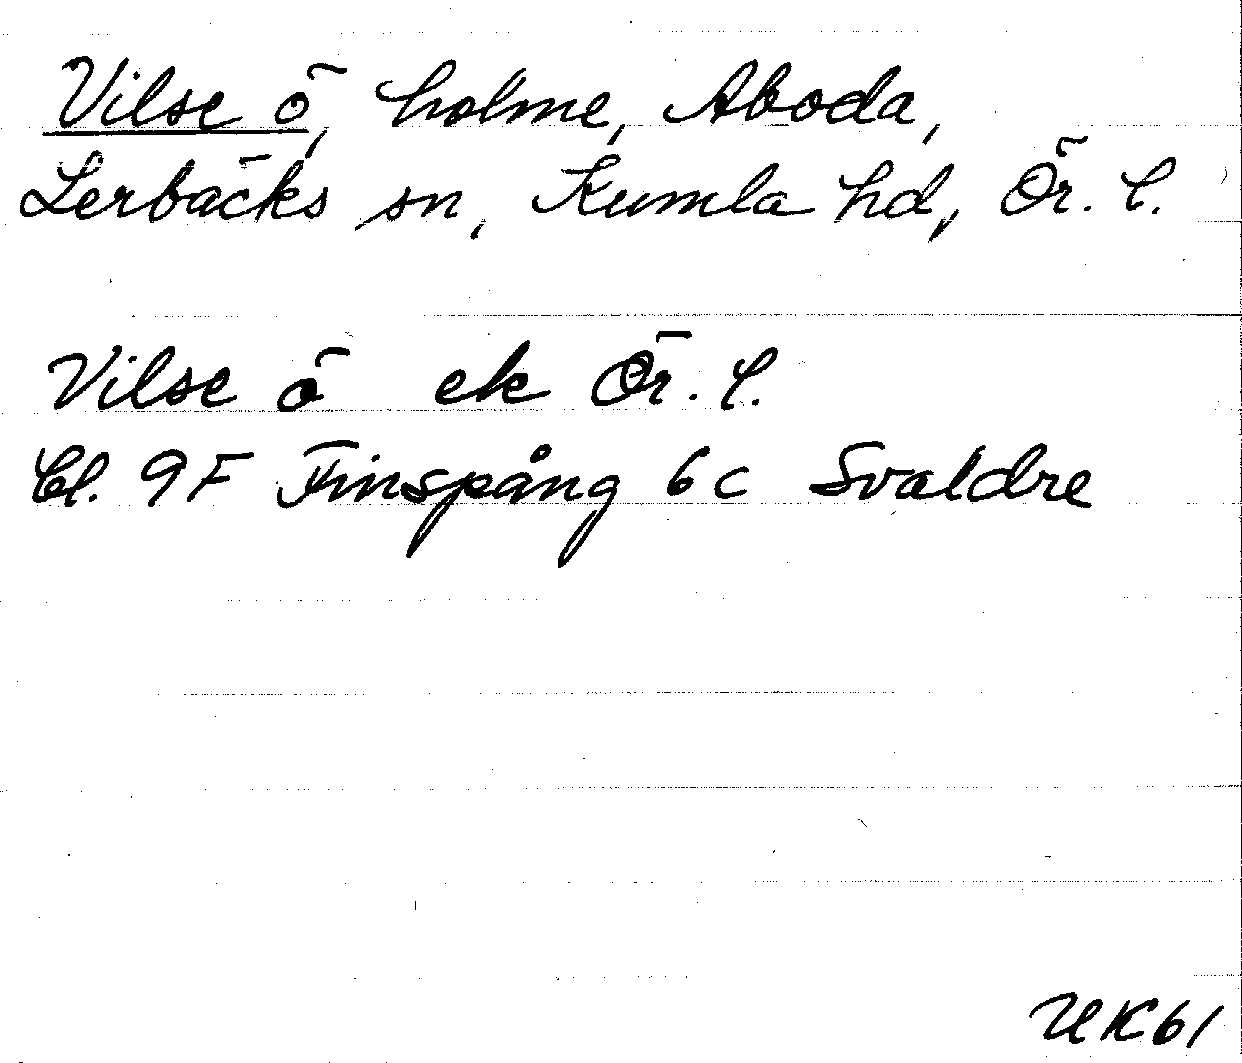 Vilse ö, holme, Aboda,
Lerbäcks sn, Kumla hd, Ör. l.
Vilse ö ek Ör. l.
Bl. 9F Finspång 6c Svaldre
UK61